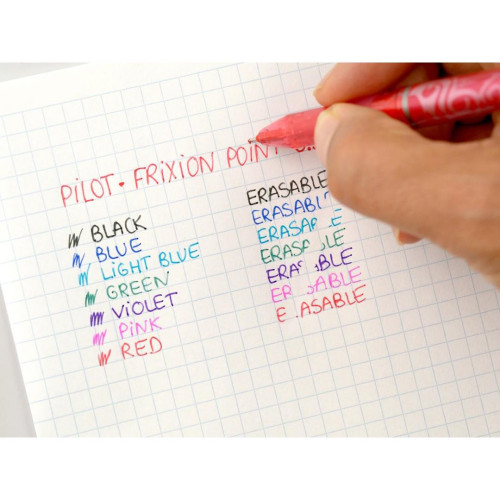 PILOT • FRIXION POINT
BLACK ERASABLE
BLUE ERASABL
LIGHT BLUE ERASABLE
GREEN ERASABLE
VIOLET ERASABLE
PINK ERASABLE
RED ERASABLE